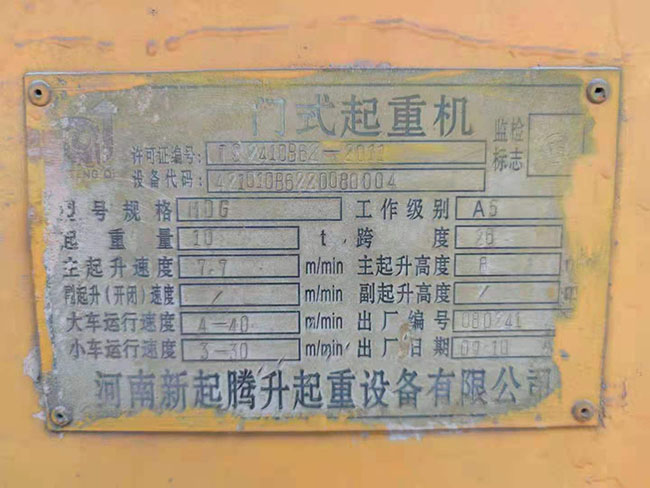 门式起重机
监检标志
许可证编号: TS2410B62-2011
设备代码: 42101086220080004
型号规格 MDG 工作级别 A5
起重量 10 t 跨度 26
主起升速度 7.7 m/min 主起升高度 8
副起升(开闭)速度 / m/min 副起升高度 /
大车运行速度 4-40 m/min 出厂编号 080241
小车运行速度 3-30 m/min 出厂日期 09.10
河南新起腾升起重设备有限公司